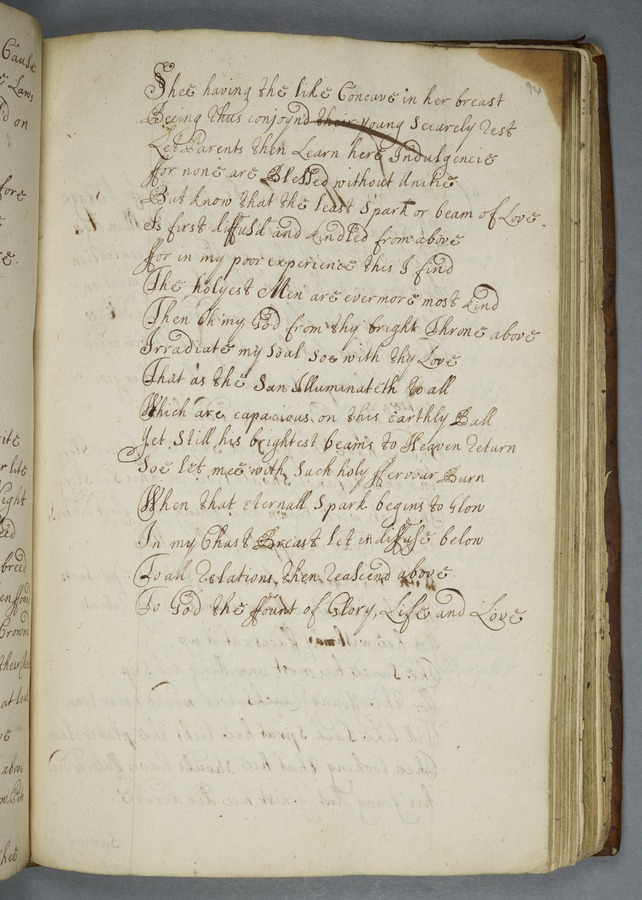 94
Shee having the like Concave in her breast
Beeing thus conjoynd their young Securely rest
Let Parents then Learn here Indulgencie
ffor none are Blessed without Unitie
But know that the least Spark or beam of Love
Is first diffus'd and kindled from above
ffor in my poor experience this I find
The holyest Men are evermore most kind
Then Oh my God from thy bright Throne above
Irradiate my Soul soe with thy Love
That as the Sun Illuminateth to all
Which are capacious on this Earthly Ball
Yet Still his brightest beams to Heaven return
Soe let mee with such holy ffervour Burn
When that eternall Spark begins to Glow
In my Chast Breast let it diffuse below
To all relations, then reascend above
To God the ffount of Glory, Life and Love